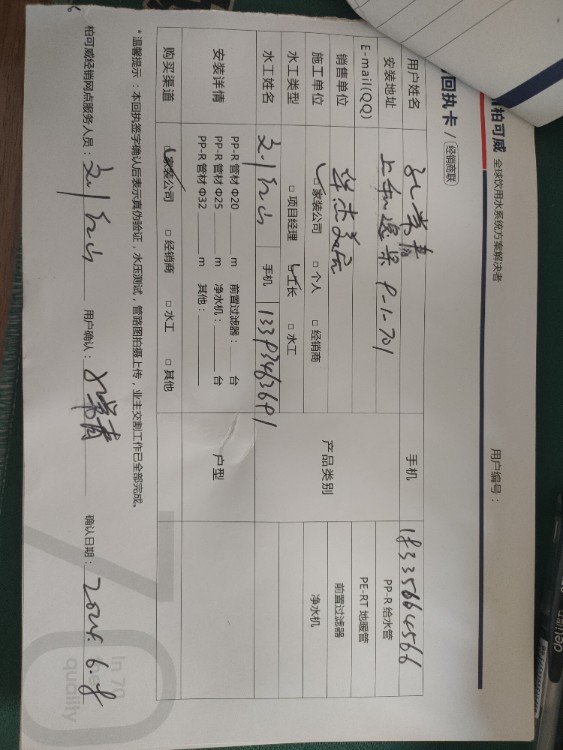 柏可威 全球饮用水系统方案解决者
回执卡 / 经销商联
用户编号：
用户姓名 手机 18335664566
安装地址 9-1-701 PP-R 给水管
E-mail(QQ) PE-RT 地暖管
销售单位 产品类别 前置过滤器
施工单位 家装公司 □ 个人 □ 经销商 净水机
水工类型 □ 项目经理 工长 □ 水工
水工姓名 手机 13393463691
安装详情 PP-R 管材 Φ20 m 前置过滤器： 台 户型
PP-R 管材 Φ25 m 净水机： 台
PP-R 管材 Φ32 m 其他：
购买渠道 家装公司 □ 经销商 □ 水工 □ 其他
*温馨提示：本回执签字确认后表示真伪验证，水压测试，管路图拍摄上传，业主交割工作已全部完成。
柏可威经销网点服务人员： 用户确认： 确认日期： 2024.6.8
In 70
quality